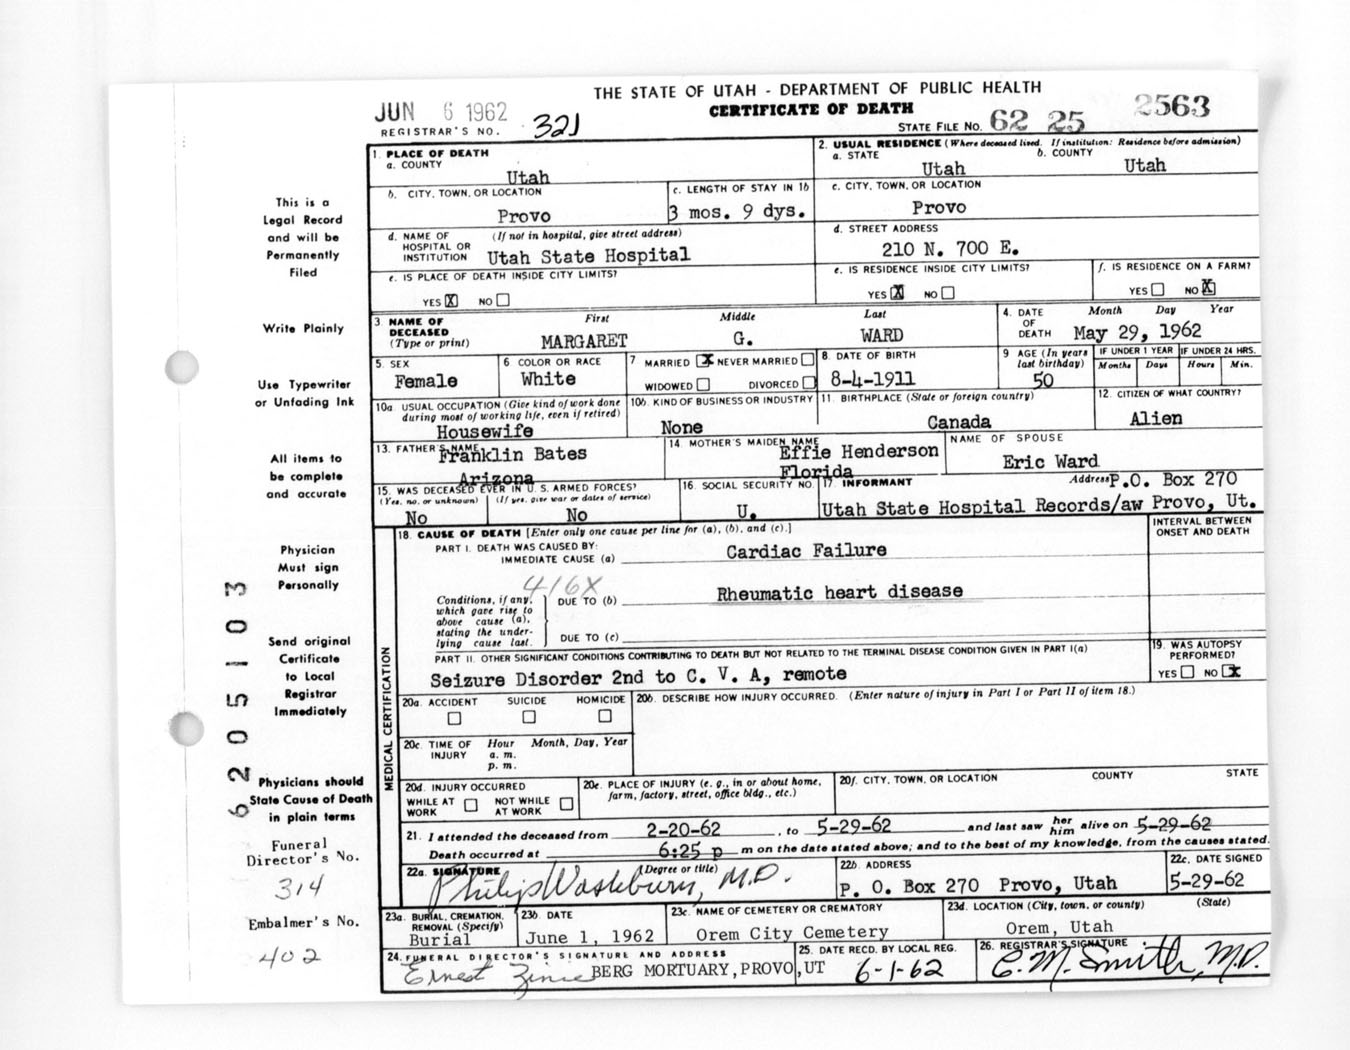 THE STATE OF UTAH - DEPARTMENT OF PUBLIC HEALTH
CERTIFICATE OF DEATH
JUN 6 1962
REGISTRAR'S NO. 321
STATE FILE NO. 62 25 2563
This is a
Legal Record
and will be
Permanently
Filed
Write Plainly
Use Typewriter
or Unfading Ink
All items to
be complete
and accurate
Physician
Must sign
Personally
Send original
Certificate
to Local
Registrar
Immediately
Physicians should
State Cause of Death
in plain terms
Funeral
Director's No.
314
Embalmer's No.
402
6205103
1. PLACE OF DEATH
a. COUNTY
Utah
2. USUAL RESIDENCE (Where deceased lived. If institution: Residence before admission)
a. STATE
Utah
b. COUNTY
Utah
b. CITY, TOWN, OR LOCATION
Provo
c. LENGTH OF STAY IN 1b
3 mos. 9 dys.
c. CITY, TOWN, OR LOCATION
Provo
d. NAME OF HOSPITAL OR INSTITUTION (If not in hospital, give street address)
Utah State Hospital
d. STREET ADDRESS
210 N. 700 E.
e. IS PLACE OF DEATH INSIDE CITY LIMITS?
YES X NO
e. IS RESIDENCE INSIDE CITY LIMITS?
YES X NO
f. IS RESIDENCE ON A FARM?
YES NO X
3. NAME OF DECEASED (Type or print)
First Middle Last
MARGARET G. WARD
4. DATE OF DEATH
Month Day Year
May 29, 1962
5. SEX
Female
6 COLOR OR RACE
White
7 MARRIED X NEVER MARRIED
WIDOWED DIVORCED
8. DATE OF BIRTH
8-4-1911
9 AGE (In years last birthday)
50
IF UNDER 1 YEAR
Months Days
IF UNDER 24 HRS.
Hours Min.
10a. USUAL OCCUPATION (Give kind of work done during most of working life, even if retired)
Housewife
10b. KIND OF BUSINESS OR INDUSTRY
None
11. BIRTHPLACE (State or foreign country)
Canada
12. CITIZEN OF WHAT COUNTRY?
Alien
13. FATHER'S NAME
Franklin Bates
Arizona
14. MOTHER'S MAIDEN NAME
Effie Henderson
Florida
NAME OF SPOUSE
Eric Ward
15. WAS DECEASED EVER IN U. S. ARMED FORCES?
(Yes, no, or unknown) (If yes, give war or dates of service)
No No
16. SOCIAL SECURITY NO.
U.
17. INFORMANT Address P.O. Box 270
Utah State Hospital Records/aw Provo, Ut.
MEDICAL CERTIFICATION
18. CAUSE OF DEATH [Enter only one cause per line for (a), (b), and (c).]
INTERVAL BETWEEN ONSET AND DEATH
PART I. DEATH WAS CAUSED BY:
IMMEDIATE CAUSE (a) Cardiac Failure
416X
Conditions, if any, which gave rise to above cause (a), stating the underlying cause last.
DUE TO (b) Rheumatic heart disease
DUE TO (c)
PART II. OTHER SIGNIFICANT CONDITIONS CONTRIBUTING TO DEATH BUT NOT RELATED TO THE TERMINAL DISEASE CONDITION GIVEN IN PART I(a)
Seizure Disorder 2nd to C. V. A, remote
19. WAS AUTOPSY PERFORMED?
YES NO X
20a. ACCIDENT SUICIDE HOMICIDE
20b. DESCRIBE HOW INJURY OCCURRED. (Enter nature of injury in Part I or Part II of item 18.)
20c. TIME OF INJURY Hour Month, Day, Year
a. m.
p. m.
20d. INJURY OCCURRED
WHILE AT WORK NOT WHILE AT WORK
20e. PLACE OF INJURY (e. g., in or about home, farm, factory, street, office bldg., etc.)
20f. CITY, TOWN, OR LOCATION COUNTY STATE
21. I attended the deceased from 2-20-62, to 5-29-62 and last saw her him alive on 5-29-62
Death occurred at 6:25 p m on the date stated above; and to the best of my knowledge, from the causes stated.
22a. SIGNATURE (Degree or title)
Philip Washburn, M.D.
22b. ADDRESS
P. O. Box 270 Provo, Utah
22c. DATE SIGNED
5-29-62
23a. BURIAL, CREMATION, REMOVAL (Specify)
Burial
23b. DATE
June 1, 1962
23c. NAME OF CEMETERY OR CREMATORY
Orem City Cemetery
23d. LOCATION (City, town, or county) (State)
Orem, Utah
24. FUNERAL DIRECTOR'S SIGNATURE AND ADDRESS
Ernest BERG MORTUARY, PROVO, UT
25. DATE RECD. BY LOCAL REG.
6-1-62
26. REGISTRAR'S SIGNATURE
C. M. Smith, M.D.